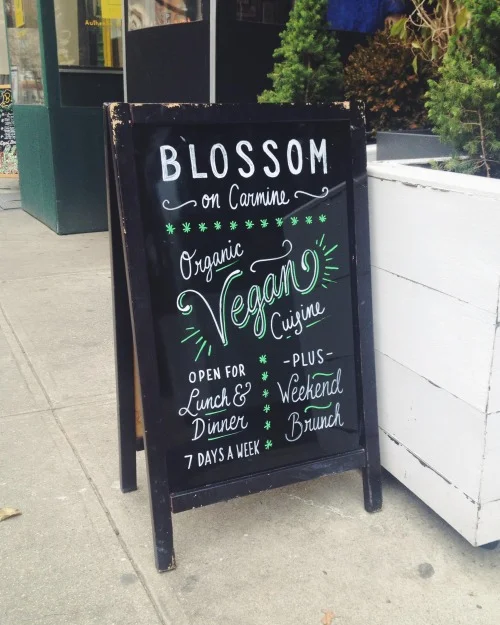 BLOSSOM
on Carmine
Organic
Vegan
Cuisine
OPEN FOR
Lunch &
Dinner
7 DAYS A WEEK
-PLUS-
Weekend
Brunch